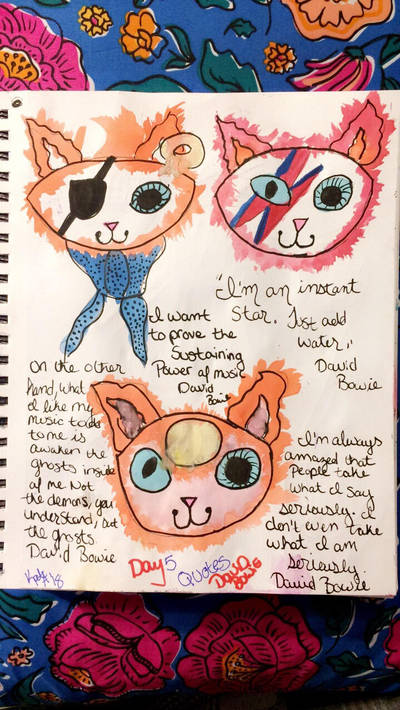 "I'm an instant
Star. Just add
water."
David
Bowie
I want
to prove the
Sustaining
Power of music
David
Bowie
On the other
hand, what
I like my
music to do
to me is
awaken the
ghosts inside
of me. Not
the demons, you
understand, but
the ghosts
David Bowie
I'm always
amazed that
People take
what I say
seriously. I
don't even take
what I am
seriously
David Bowie
Day 5
Quotes
David
Bowie